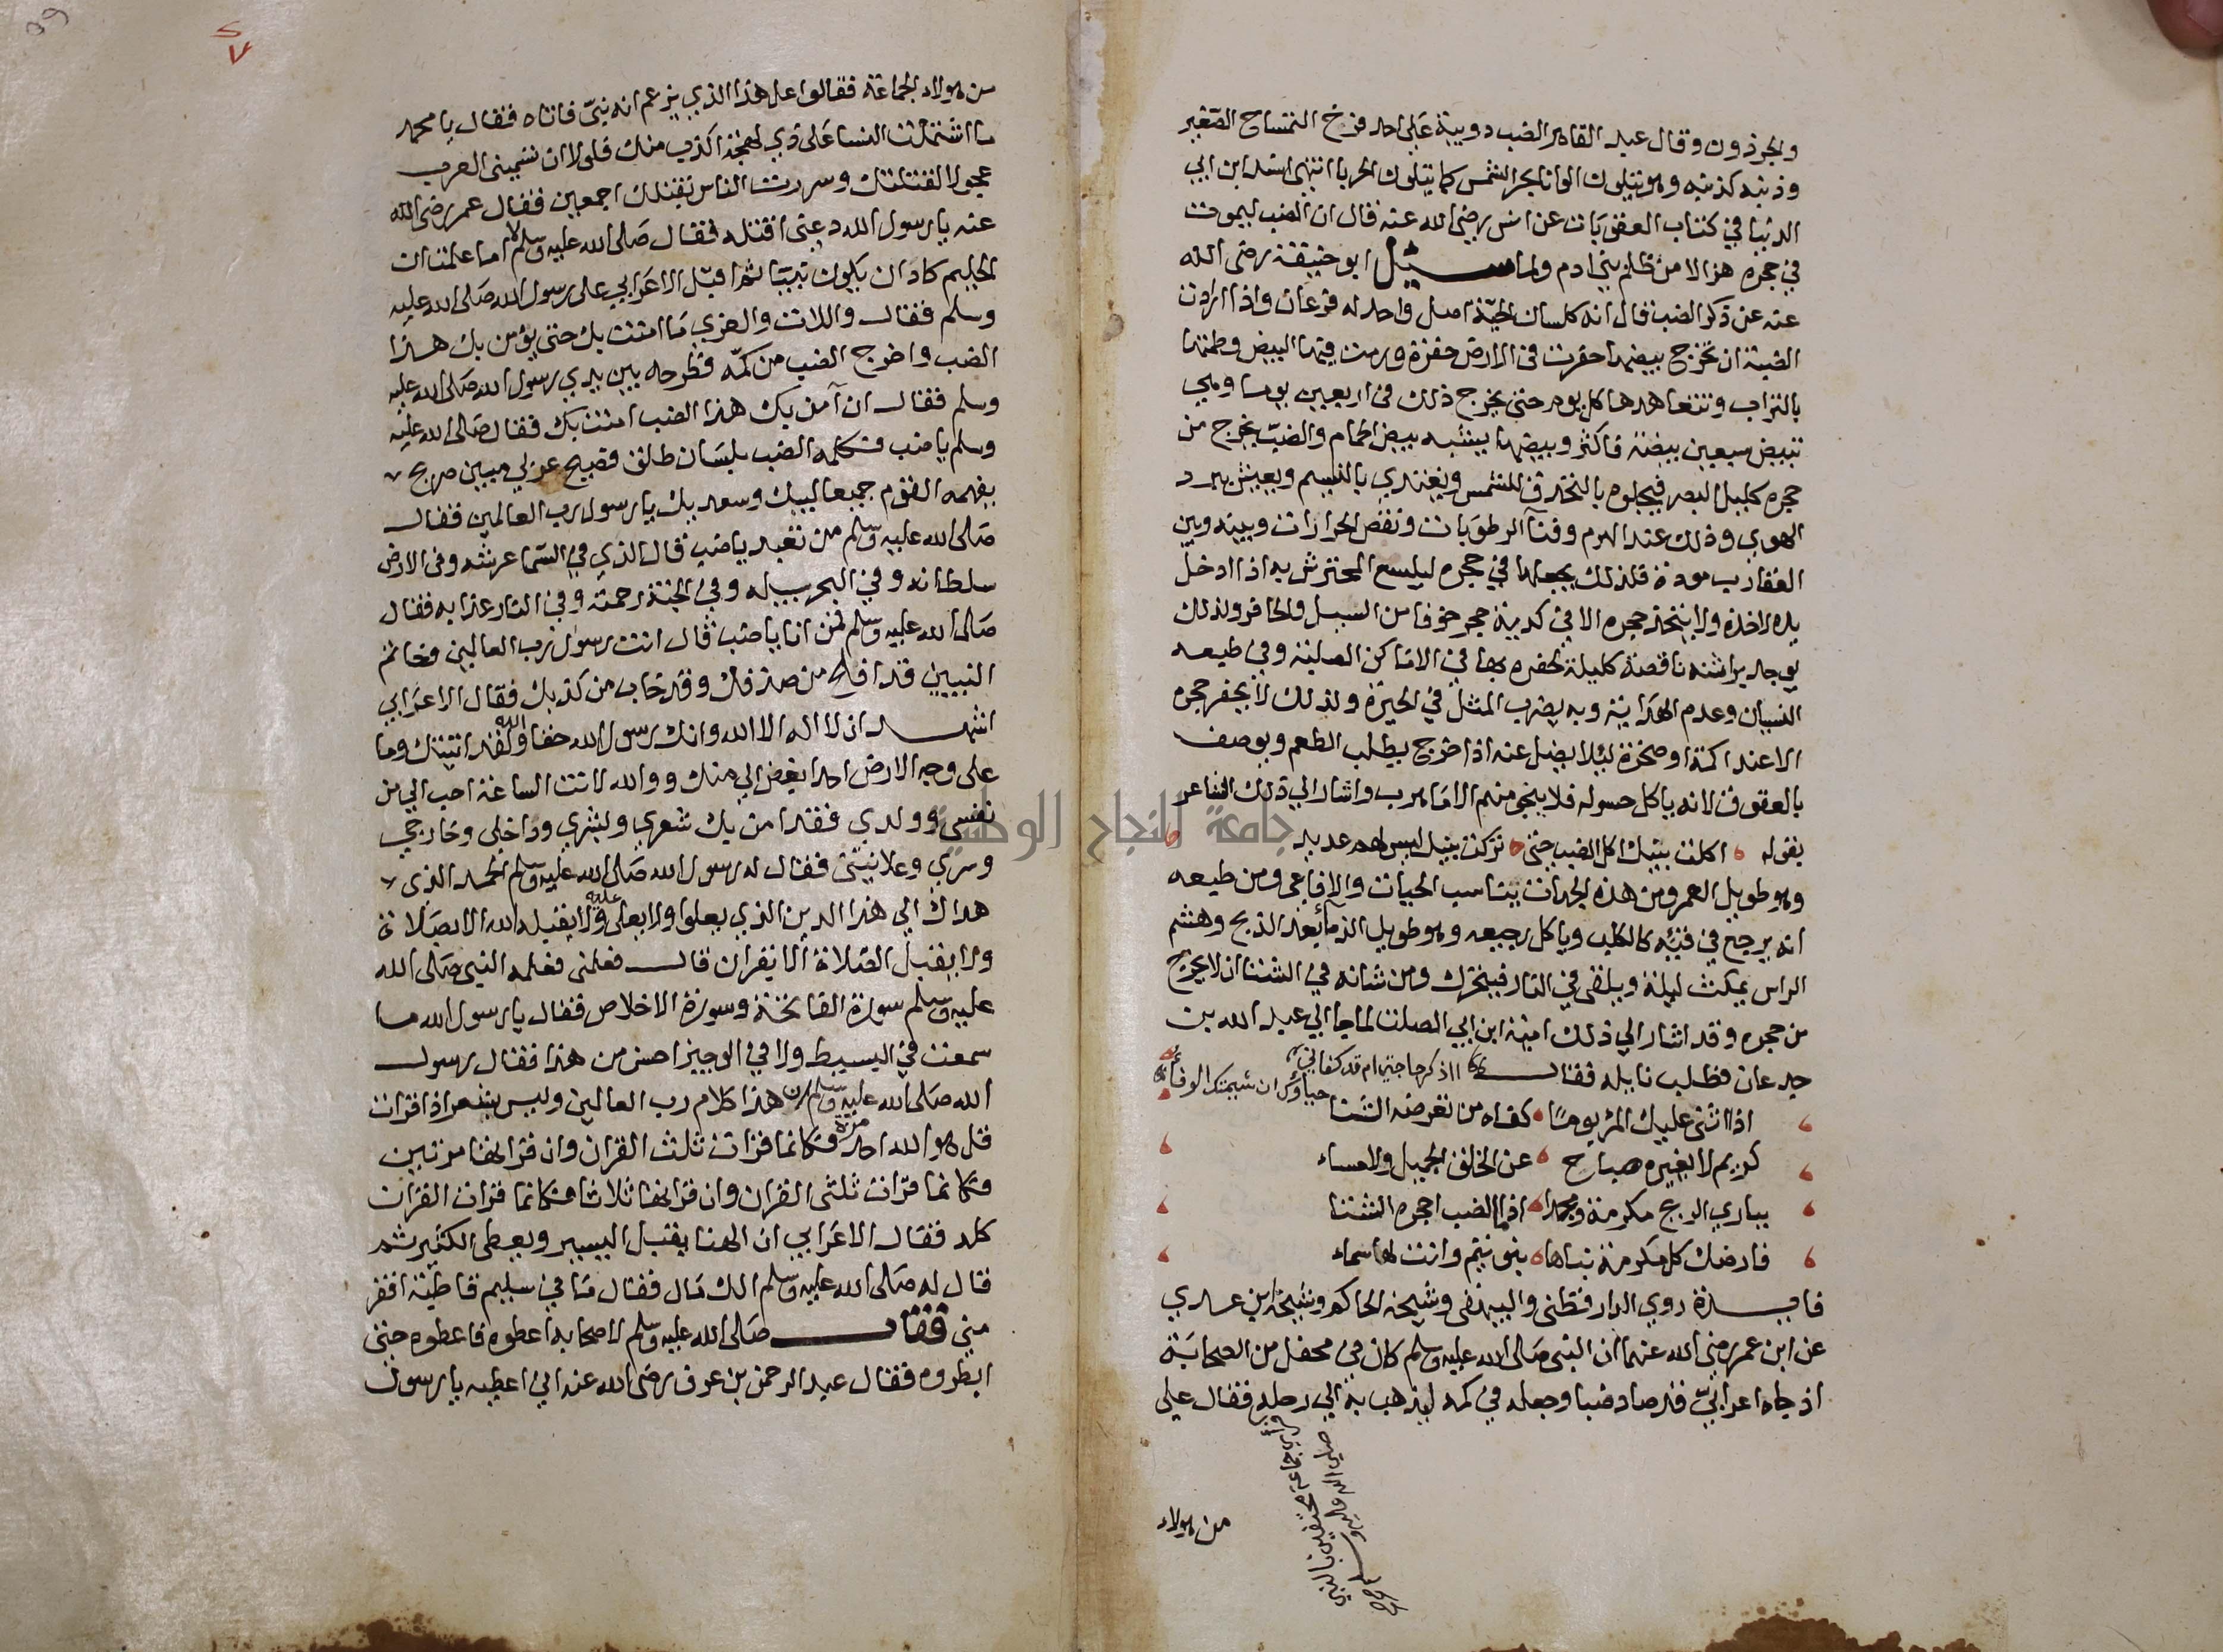 والجرذون وقال عبد القاهر الضب دويبة على احد فرخ التمساح الصغير
وذنبه كذنبه وهو يتلون الوانا بحر الشمس كما يتلون الحربا انتهى اسند ابن ابي
الدنيا في كتاب العقوبات عن انس رضي الله عنه قال ان الضب ليموت
في حجره هزالا من ظلم بني ادم ولما سئل ابو حنيفة رضى الله
عنه عن ذكر الضب قال انه كلسان الحية اصل واحد له فرعان واذا ارادت
الضبة ان تخرج بيضها حفرت في الارض حفرة ورمت فيها البيض وطمتها
بالتراب وتتعاهدها كل يوم حتى يخرج ذلك في اربعين يوما وهي
تبيض سبعين بيضة فاكثر وبيضها يشبه بيض الحمام والضب يخرج من
حجره كليل البصر فيجلوه بالتحدق للشمس ويغتدي بالنسيم ويعيش ببرد
الهوى وذلك عند الهرم وفنآ الرطوبات ونقص الحرارات وبينه وبين
العقارب مودة فلذلك يجعلها في حجره ليلسع المحترش به اذا ادخل
يده لاخذه ولا يتخذ حجره الا في كدية حجر خوفا من السيل والحافر ولذلك
يوجد براثنه ناقصة كليلة لحفره بها في الاماكن الصلبة وفي طبعه
النسيان وعدم الهداية وبه يضرب المثل في الحيرة ولذلك لا يحفر حجره
الا عند اكمة او صخرة ليلا يضل عنه اذا خرج يطلب الطعم ويوصف
بالعقوق لانه ياكل حسوله فلا ينجو منهم الا ما هرب واشار الي ذلك الشاعر
بقوله اكلت بنيك اكل الضب حتى تركت بنيك ليس لهم عديد
وهو طويل العمر ومن هذه الجهات يناسب الحيات والافاعي ومن طبعه
انه يرجع في قيئه كالكلب وياكل رجيعه وهو طويل الذمآ بعد الذبح وهشم
الراس يمكث ليلة ويلقى في النار فيتحرك ومن شانه في الشتا ان لا يخرج
من حجره وقد اشار الي ذلك امية ابن ابي الصلت لما جا الي عبد الله بن
جدعان فطلب نايله فقال ااذكر حاجتي ام قد كفاني حياؤك ان شيمتك الوفاء
اذا اثنى عليك المرء يوما كفاه من تعرضه الثنا
كريم لا يغيره صباح عن الخلق الجميل ولا مساء
يباري الريح مكرمة ومجدا اذا ما الضب احجره الشتا
فارضك كل مكرمة بناها بنو تيم وانت لها سماء
فايدة روي الدارقطنى والبيهقى وشيخه الحاكم وشيخه ابن عدي
عن ابن عمر رضي الله عنهما ان النبي صلى الله عليه وسلم كان في محفل من الصحابة
اذ جاه اعرابيّ قد صاد ضبا وجعله في كمه ليذهب به الي رحله فقال على
من هولاء
من هولاء الجماعة فقالوا على هذا الذي يزعم انه نبيّ فاتاه فقال يا محمد
ما اشتملت النسا على ذي لهجة اكذب منك فلولا ان تسميني العرب
عجولا لقتلتك وسررت الناس بقتلك اجمعين فقال عمر رضى الله
عنه يا رسول الله دعني اقتله فقال صلى الله عليه وسلم لا اما علمت ان
الحليم كاد ان يكون نبيّا ثم اقبل الاعرابي على رسول الله صلى الله عليه
وسلم فقال واللات والعزي ما امنت بك حتى يؤمن بك هذا
الضب واخرج الضب من كمّه فطرحه بين يدي رسول الله صلى الله عليه
وسلم فقال ان آمن بك هذا الضب امنت بك فقال صلى الله عليه
وسلم يا ضب فكلمه الضب بلسان طلق فصيح عربي مبين صريح
يفهمه القوم جميعا لبيك وسعديك يا رسول رب العالمين فقال
صلى الله عليه وسلم من تعبد يا ضب قال الذي في السما عرشه وفي الارض
سلطانه وفي البحر سبيله وفي الجنة رحمته وفي النار عذابه فقال
صلى الله عليه وسلم فمن انا يا ضب قال انت رسول رب العالمين وخاتم
النبيين قد افلح من صدقك وقد خاب من كذبك فقال الاعرابي
اشهد ان لا اله الا الله وانك رسول الله حقا والله لقد اتيتك وما
على وجه الارض احد ابغض الي منك ووالله لانت الساعة احب الي من
نفسي وولدي فقد امن بك شعري وبشري وداخلي وخارجي
وسري وعلانيتي فقال له رسول الله صلى الله عليه وسلم الحمد الذي
هداك الي هذا الدين الذي يعلوا ولا يعلى عليه ولا يقبله الله الا بصلاة
ولا يقبل الصلاة الا بقران قال فعلمني فعلمه النبي صلى الله
عليه وسلم سورة الفاتحة وسورة الاخلاص فقال يا رسول الله ما
سمعت في البسيط ولا في الوجيز احسن من هذا فقال رسول
الله صلى الله عليه وسلم ان هذا كلام رب العالمين وليس بشعر اذا قرات
قل هو الله احد مرة فكانما قرات ثلث القران وان قراتها مرتين
فكانما قرات ثلثى القران وان قراتها ثلاثا فكانما قرات القران
كله فقال الاعرابي ان الهنا يقبل اليسير ويعطى الكثير ثم
قال له صلى الله عليه وسلم الك مال فقال ما في سليم قاطبة افقر
مني فقال صلى الله عليه وسلم لاصحابه اعطوه فاعطوه حتى
ابطروه فقال عبد الرحمن بن عوف رضى الله عنه اني اعطيه يا رسول
جامعة النجاح الوطنية